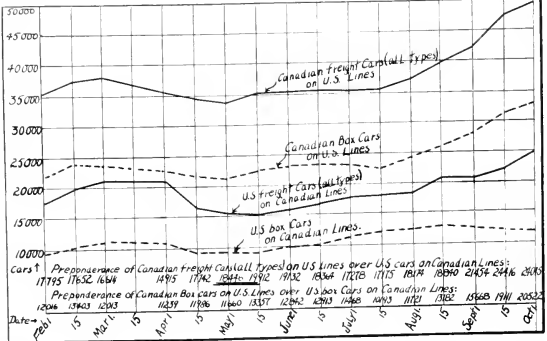 50000
45000
40000
35000
30000
25000
20000
15000
10000
Canadian freight Cars (all types)
on U.S. Lines
Canadian Box Cars
on U.S. Lines
U.S freight Cars (all types)
on Canadian Lines
U.S box Cars
on Canadian Lines.
Cars ↑ Preponderance of Canadian freight Cars (all types) on US Lines over U.S cars on Canadian Lines:
17795 17652 16614 14915 17742 18446 19912 19132 18364 17278 17175 18174 18840 21454 24416 24015
Preponderance of Canadian Box cars on U.S. Lines over U.S. box Cars on Canadian Lines:
12016 13403 12013 11239 11996 11660 13357 12842 12913 11468 10413 11721 13182 15668 19111 20522
Date→ Feb.1 15 Mar.1 15 Apr.1 15 May1 15 June1 15 July1 15 Aug.1 15 Sept.1 15 Oct.1